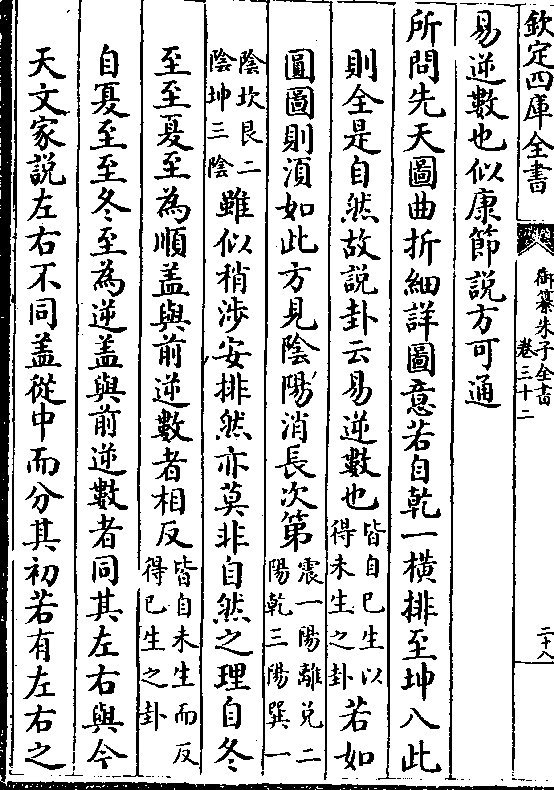 欽定四庫全書
御纂朱子全書
卷三十二
二十八
易逆數也似康節說方可通
所問先天圖曲折細詳圖意若自乾一橫排至坤八此
則全是自然故說卦云易逆數也皆自已生以得未生之卦若如
圓圖則湏如此方見陰陽消長次第震一陽離兌二陽乾三陽巽一
陰坎艮二陰坤三陰雖似稍涉安排然亦莫非自然之理自冬
至至夏至為順盖與前逆數者相反皆自未生而反得已生之卦
自夏至至冬至為逆盖與前逆數者同其左右與今
天文家說左右不同盖從中而分其初若有左右之